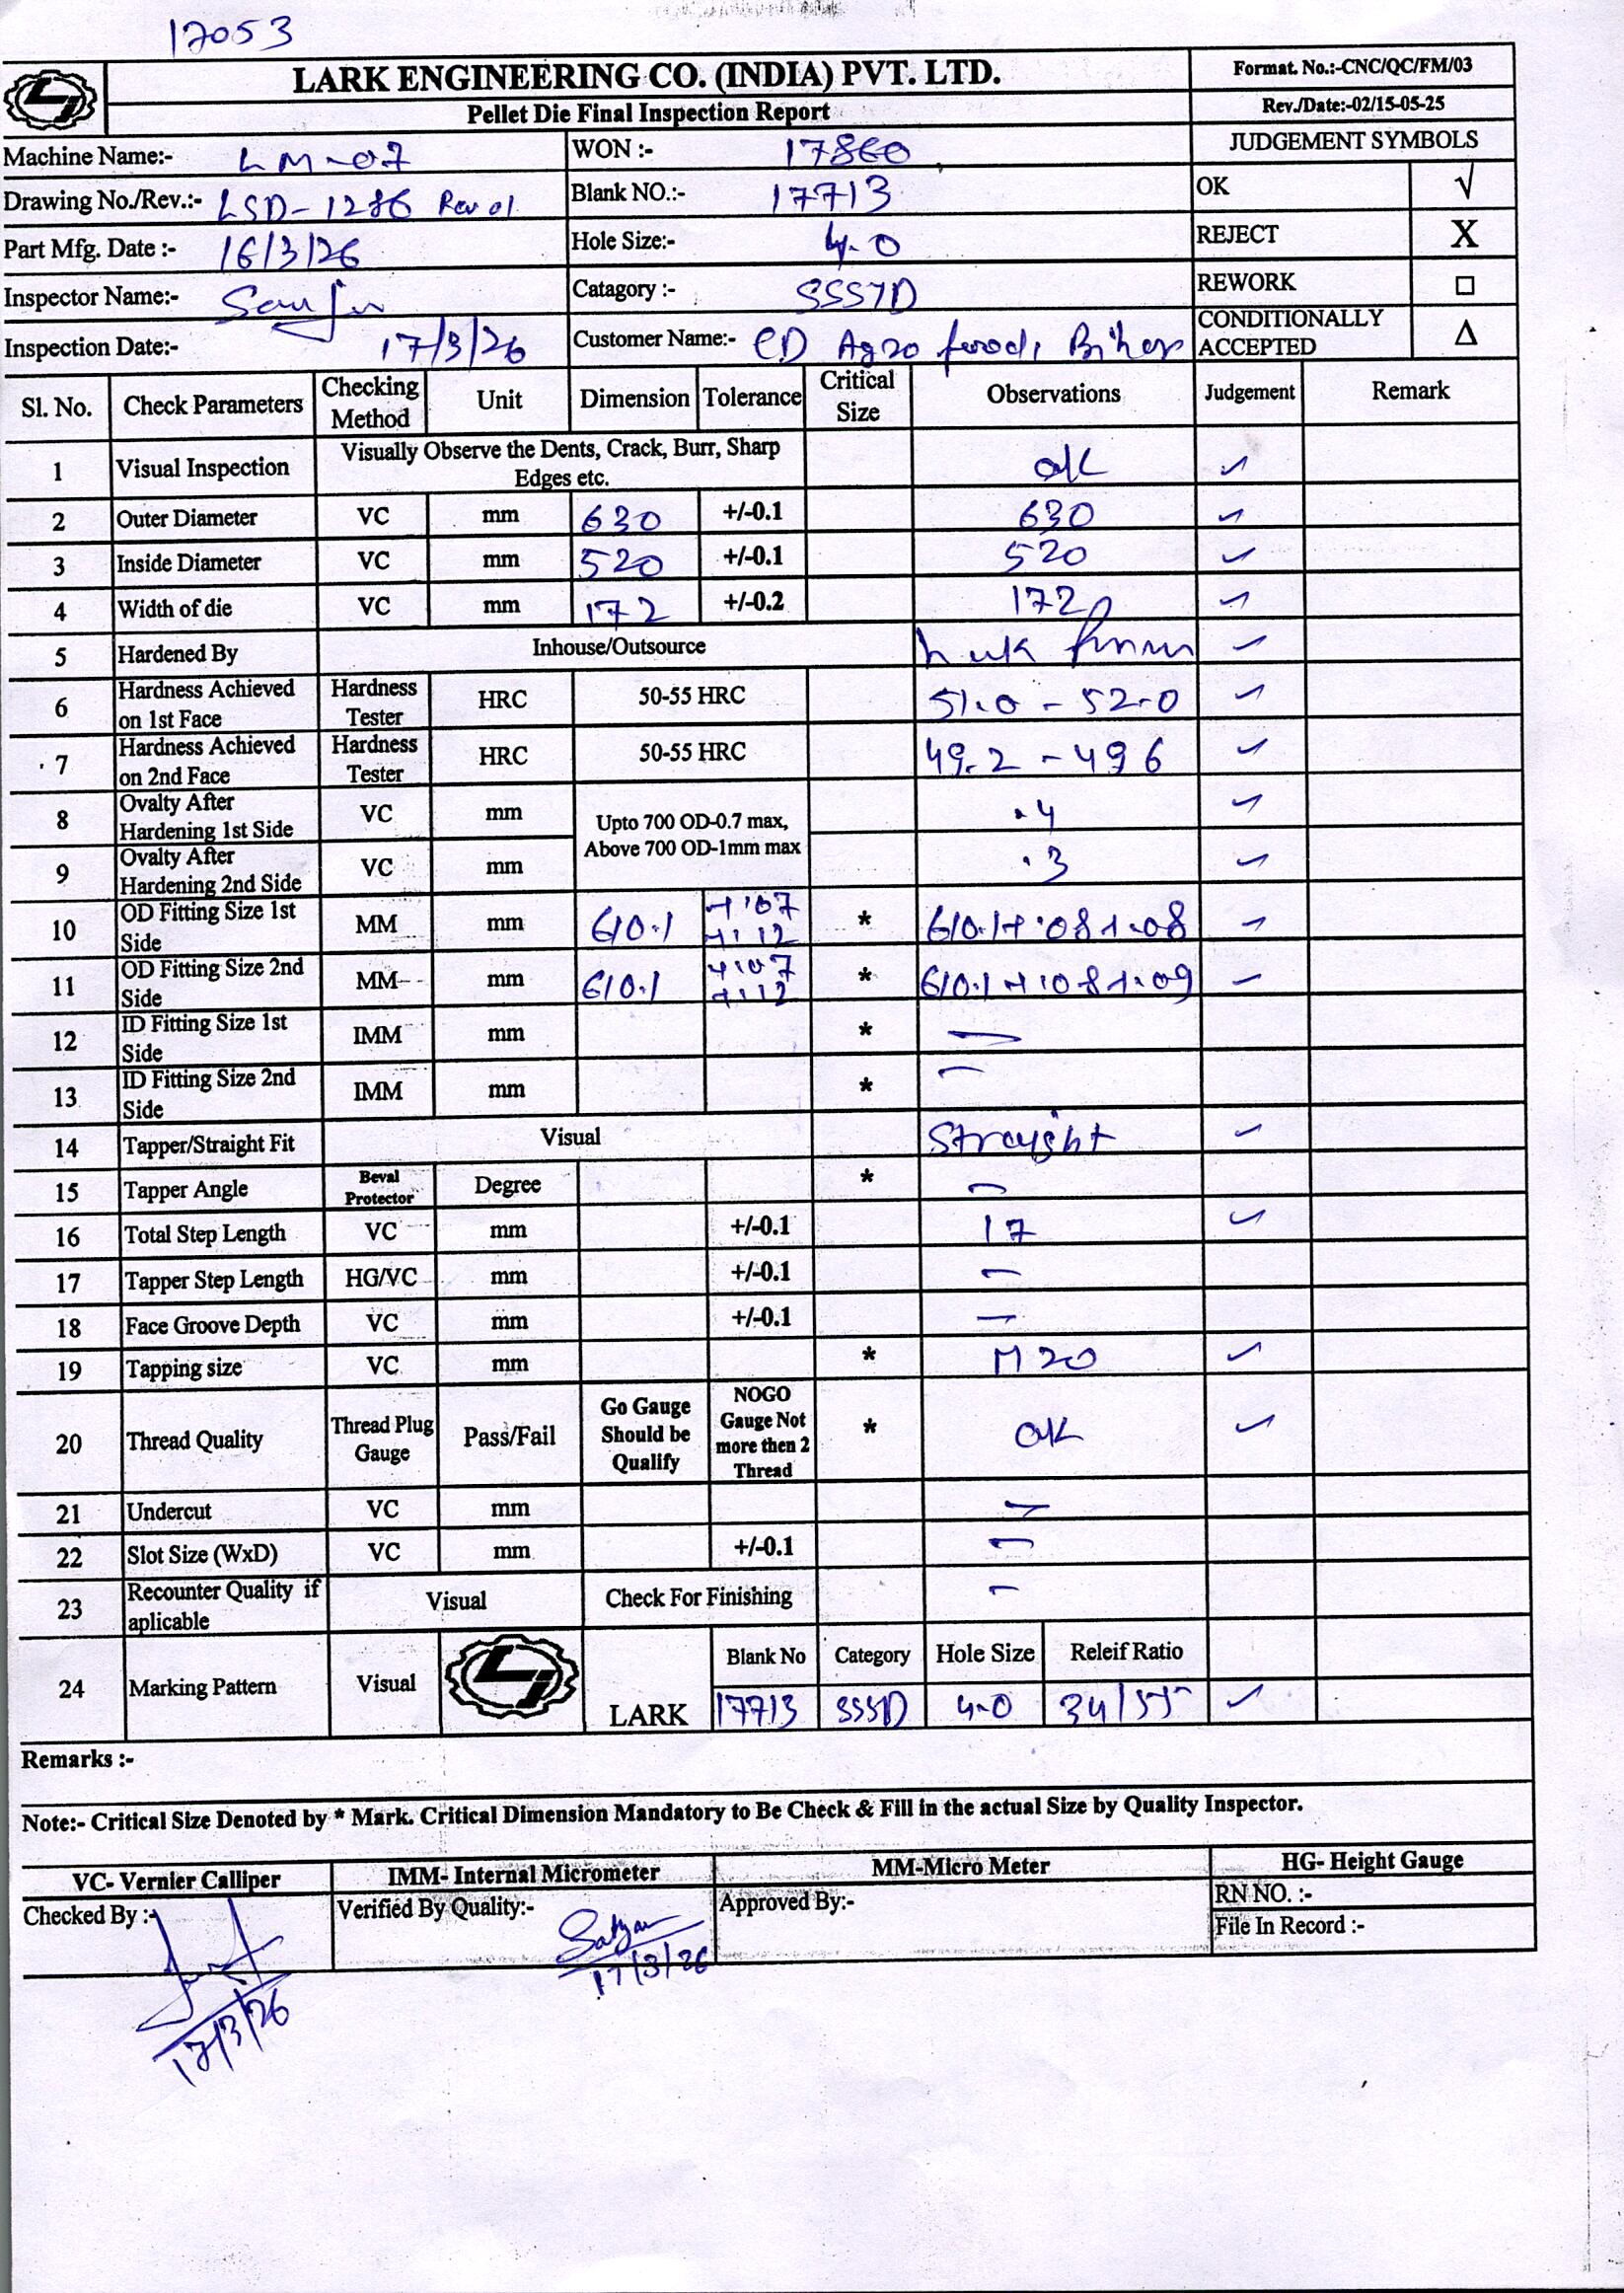 17053
LARK ENGINEERING CO. (INDIA) PVT. LTD.
Pellet Die Final Inspection Report
Format. No.:-CNC/QC/FM/03
Rev./Date:-02/15-05-25
Machine Name:- LM-07 WON :- 17860 JUDGEMENT SYMBOLS
Drawing No./Rev.:- LSD-1286 Rev 01 Blank NO.:- 17713 OK √
Part Mfg. Date :- 16/3/26 Hole Size:- 4.0 REJECT X
Inspector Name:- Catagory :- REWORK □
Inspection Date:- 17/3/26 Customer Name:- Agro CONDITIONALLY ACCEPTED Δ
Sl. No. Check Parameters Checking Method Unit Dimension Tolerance Critical Size Observations Judgement Remark
1 Visual Inspection Visually Observe the Dents, Crack, Burr, Sharp Edges etc. ok ✓
2 Outer Diameter VC mm 630 +/-0.1 630 ✓
3 Inside Diameter VC mm 520 +/-0.1 520 ✓
4 Width of die VC mm 172 +/-0.2 172 ✓
5 Hardened By Inhouse/Outsource ✓
6 Hardness Achieved on 1st Face Hardness Tester HRC 50-55 HRC 51.0 - 52.0 ✓
7 Hardness Achieved on 2nd Face Hardness Tester HRC 50-55 HRC 49.2 - 49 6 ✓
8 Ovalty After Hardening 1st Side VC mm Upto 700 OD-0.7 max, Above 700 OD-1mm max .4 ✓
9 Ovalty After Hardening 2nd Side VC mm .3 ✓
10 OD Fitting Size 1st Side MM mm 610.1 +.07 +.12 * 610.1+.08+.08 ✓
11 OD Fitting Size 2nd Side MM mm 610.1 +.07 +.12 * 610.1+.08+.09 ✓
12 ID Fitting Size 1st Side IMM mm * —
13 ID Fitting Size 2nd Side IMM mm * —
14 Tapper/Straight Fit Visual Straight ✓
15 Tapper Angle Beval Protector Degree * —
16 Total Step Length VC mm +/-0.1 17 ✓
17 Tapper Step Length HG/VC mm +/-0.1 —
18 Face Groove Depth VC mm +/-0.1 —
19 Tapping size VC mm * M20 ✓
20 Thread Quality Thread Plug Gauge Pass/Fail Go Gauge Should be Qualify NOGO Gauge Not more then 2 Thread * ok ✓
21 Undercut VC mm —
22 Slot Size (WxD) VC mm +/-0.1 —
23 Recounter Quality if aplicable Visual Check For Finishing —
24 Marking Pattern Visual LARK Blank No Category Hole Size Releif Ratio
17713 SSSD 4.0 34/55 ✓
Remarks :-
Note:- Critical Size Denoted by * Mark. Critical Dimension Mandatory to Be Check & Fill in the actual Size by Quality Inspector.
VC- Vernier Calliper IMM- Internal Micrometer MM-Micro Meter HG- Height Gauge
Checked By :- Verified By Quality:- Approved By:- RN NO. :-
File In Record :-
17/3/26
17/3/26